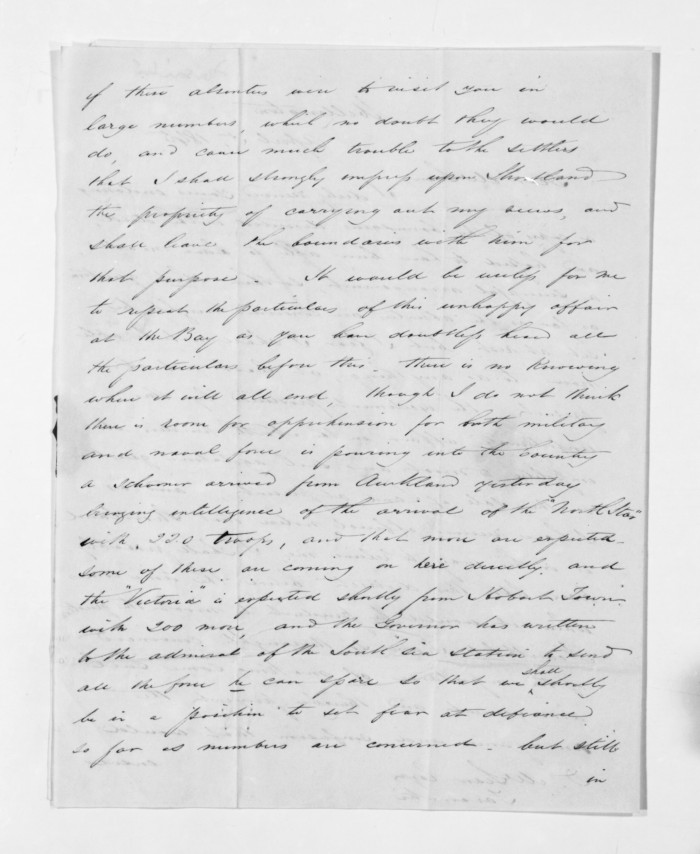 if these absentees were to visit you in
large numbers, which no doubt they would
do, and cause much trouble to the settlers
that I shall strongly impress upon Shortland
the propriety of carrying out my views, and
shall leave the boundaries with him for
that purpose. It would be useless for me
to repeat the particulars of this unhappy affair
at the Bay as you have doubtless heard all
the particulars before this. there is no knowing
where it will all end, though I do not think
there is room for apprehension for both military
and naval force is pouring into the Country
a schooner arrived from Auckland yesterday
bringing intelligence of the arrival of the "North Star"
with 220 troops, and that more are expected
some of these are coming on here directly. and
the "Victoria" is expected shortly from Hobart Town
with 200 more, and the Governor has written
to the admiral of the South Sea station to send
all the force he can spare so that we shall shortly
be in a position to set fear at defiance
so far as numbers are concerned. but still
in